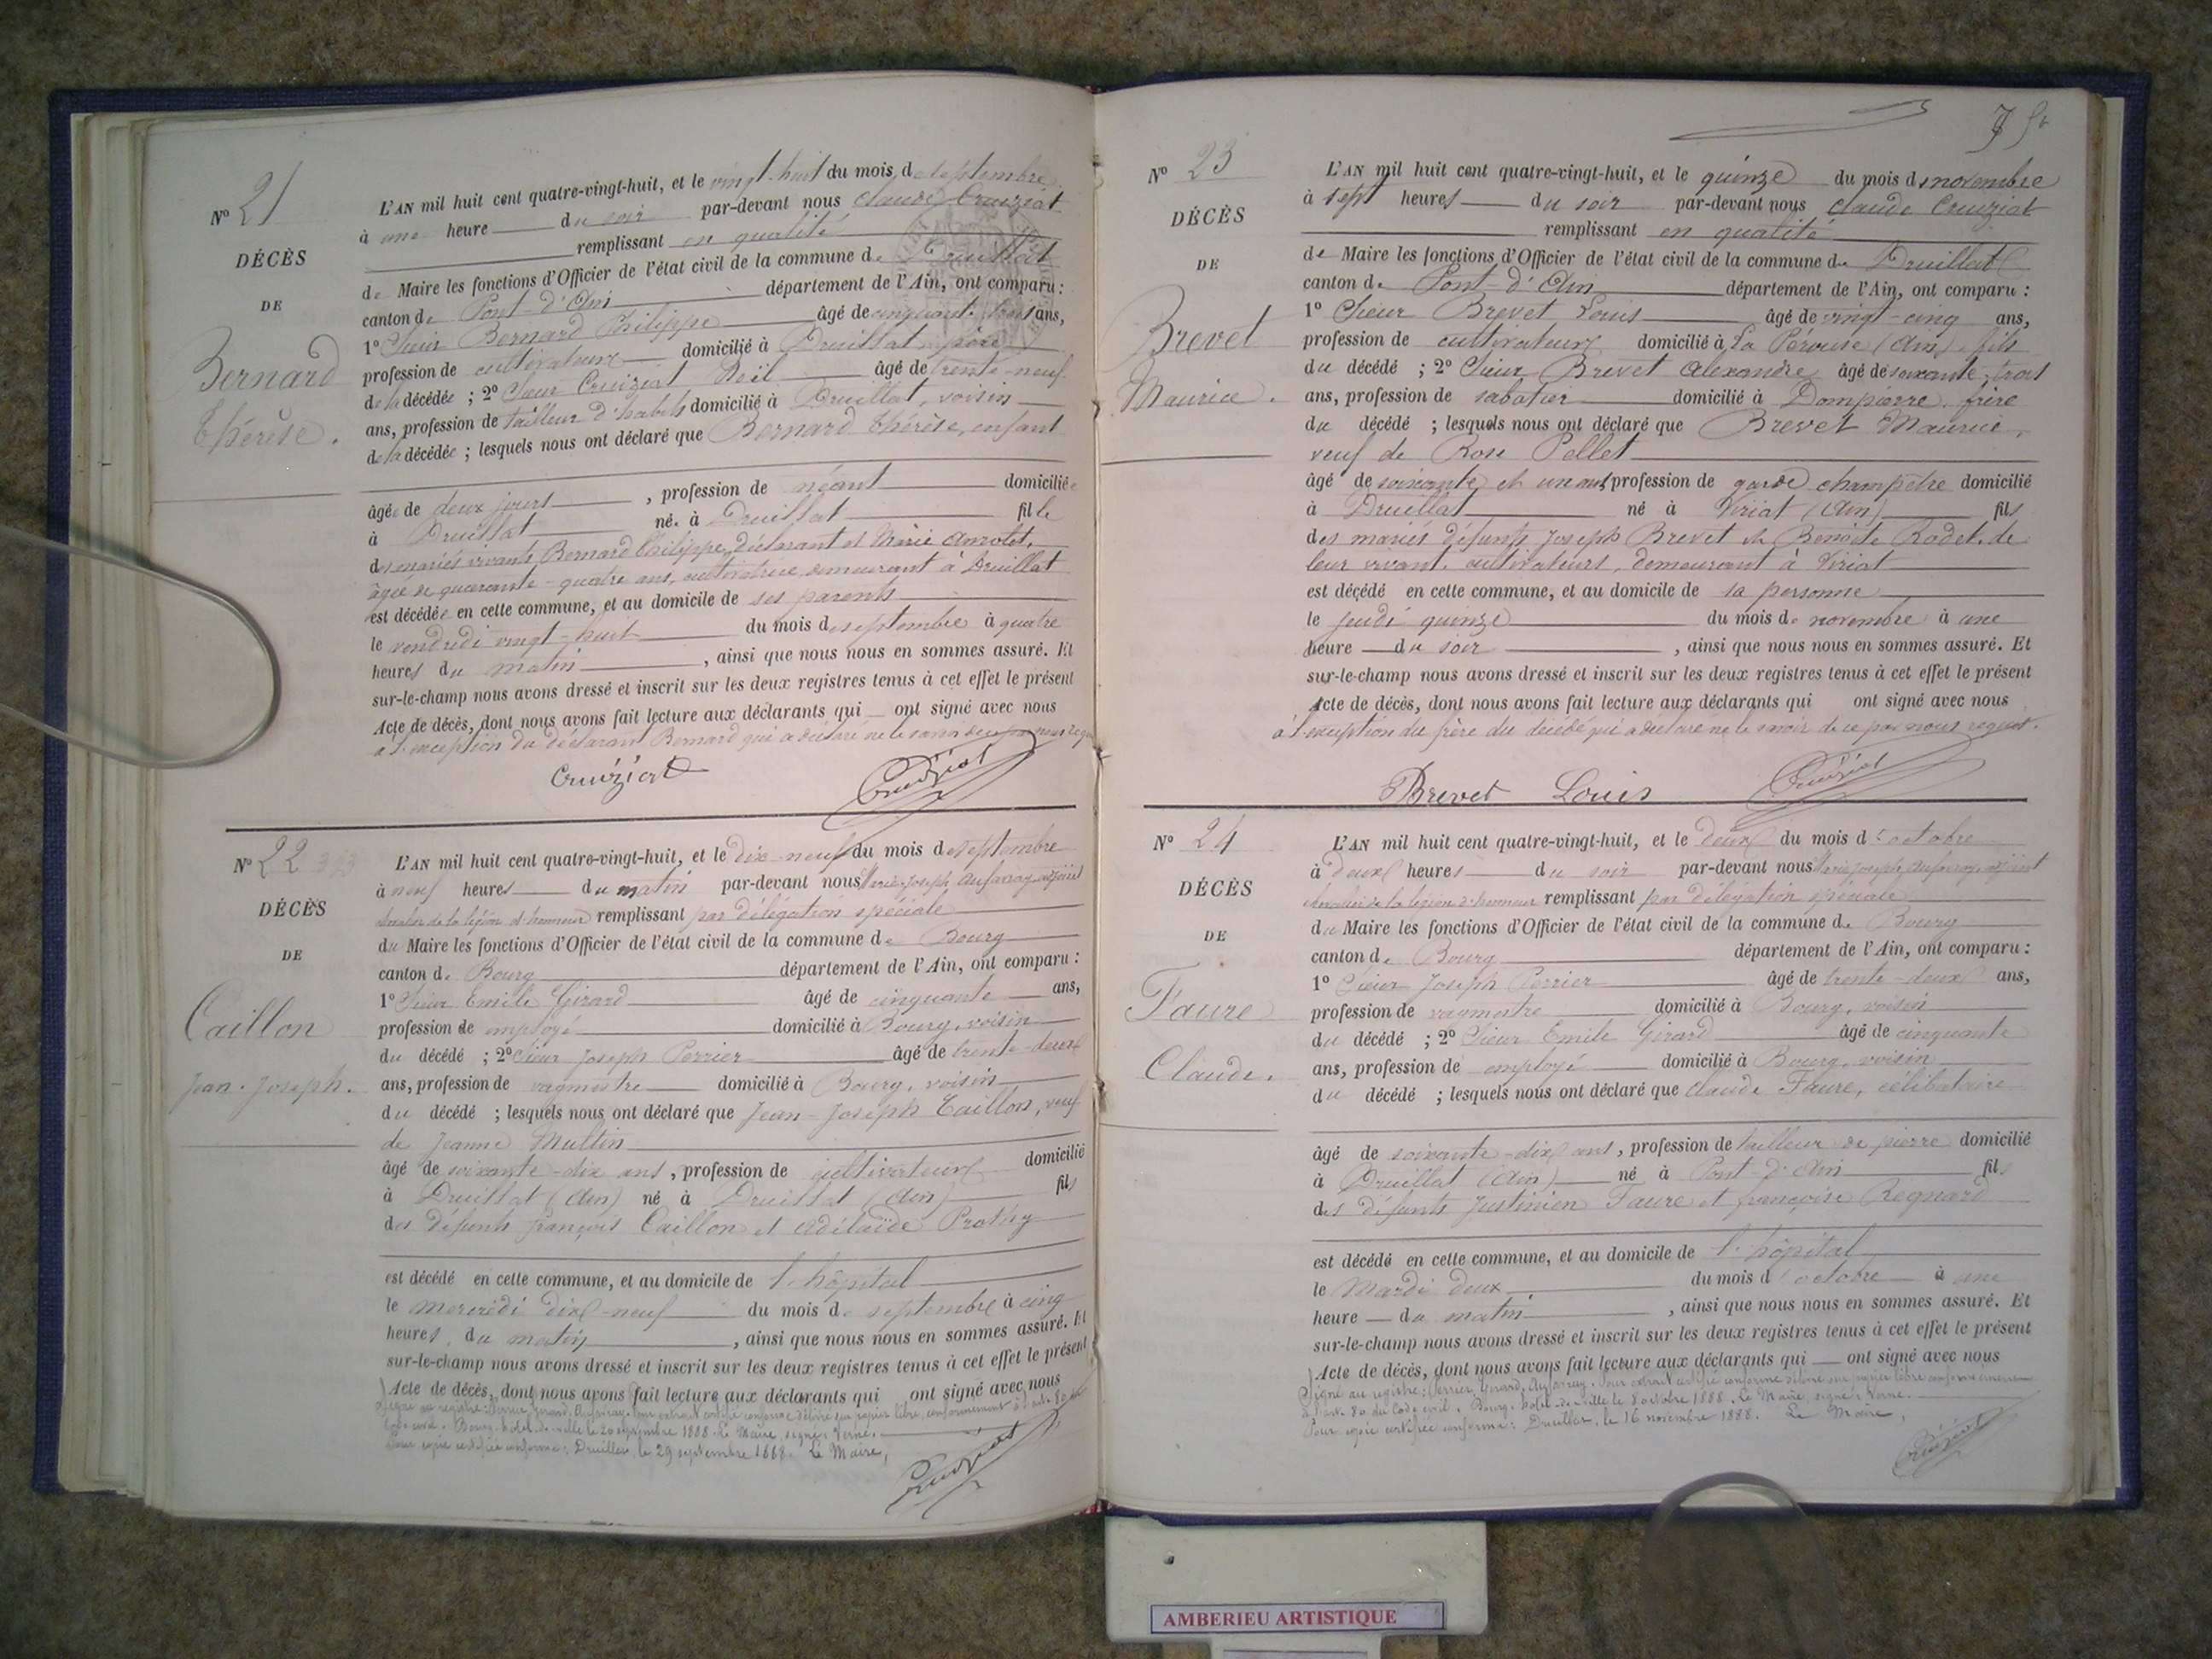 Nº 21
DÉCÈS
DE
Bernard
Thérèse.
L'AN mil huit cent quatre-vingt-huit, et le vingt-huit du mois de septembre
à une heure du soir par-devant nous Claude Cruiziat
remplissant en qualité
de Maire les fonctions d'Officier de l'état civil de la commune de Druillat
canton de Pont-d'Ain département de l'Ain, ont comparu :
1º Sieur Bernard Philippe âgé de cinquante-trois ans,
profession de cultivateur domicilié à Druillat, père
de la décédée ; 2º Sieur Cruiziat Noël âgé de trente-neuf
ans, profession de tailleur d'habits domicilié à Druillat, voisin
de la décédée ; lesquels nous ont déclaré que Bernard Thérèse, enfant
âgée de deux jours, profession de néant domiciliée
à Druillat née à Druillat fille
des mariés vivants Bernard Philippe, déclarant et Marie
âgée de quarante-quatre ans, cultivatrice, demeurant à Druillat
est décédée en cette commune, et au domicile de ses parents
le vendredi vingt-huit du mois de septembre à quatre
heures du matin, ainsi que nous nous en sommes assuré. Et
sur-le-champ nous avons dressé et inscrit sur les deux registres tenus à cet effet le présent
Acte de décès, dont nous avons fait lecture aux déclarants qui ont signé avec nous
à l'exception du déclarant Bernard qui a déclaré ne le savoir de ce par nous requis
Cruiziat Cruiziat
Nº 22
DÉCÈS
DE
Caillon
Jean-Joseph.
L'AN mil huit cent quatre-vingt-huit, et le dix-neuf du mois de septembre
à neuf heures du matin par-devant nous Marie Joseph adjoint
chevalier de la légion d'honneur remplissant par délégation spéciale
du Maire les fonctions d'Officier de l'état civil de la commune de Bourg
canton de Bourg département de l'Ain, ont comparu :
1º Sieur Emile Girard âgé de cinquante ans,
profession de employé domicilié à Bourg, voisin
du décédé ; 2º Sieur Joseph Perrier âgé de trente-deux
ans, profession de vagmestre domicilié à Bourg, voisin
du décédé ; lesquels nous ont déclaré que Jean-Joseph Caillon, veuf
de Jeanne Multin
âgé de soixante-dix ans, profession de cultivateur domicilié
à Druillat (Ain) né à Druillat (Ain) fils
des défunts françois Caillon et Adélaïde
est décédé en cette commune, et au domicile de l'hôpital
le mercredi dix-neuf du mois de septembre à cinq
heures du matin, ainsi que nous nous en sommes assuré. Et
sur-le-champ nous avons dressé et inscrit sur les deux registres tenus à cet effet le présent
Acte de décès, dont nous avons fait lecture aux déclarants qui ont signé avec nous
Signé au registre: Perrier, Girard, Pour extrait certifié conforme délivré sur papier libre, conformément à l'art. 80 du
Code civil. Bourg, hôtel-de-ville le 20 septembre 1888. Le Maire, signé: Verne.
Pour copie certifiée conforme: Druillat, le 29 septembre 1888. Le Maire,
Cruiziat
Nº 23
DÉCÈS
DE
Brevet
Maurice.
L'AN mil huit cent quatre-vingt-huit, et le quinze du mois de novembre
à sept heures du soir par-devant nous Claude Cruiziat
remplissant en qualité
de Maire les fonctions d'Officier de l'état civil de la commune de Druillat
canton de Pont-d'Ain département de l'Ain, ont comparu :
1º Sieur Brevet Louis âgé de vingt-cinq ans,
profession de cultivateur domicilié à La Pérouse (Ain), fils
du décédé ; 2º Sieur Brevet Alexandre âgé de soixante-trois
ans, profession de sabotier domicilié à Dompierre, frère
du décédé ; lesquels nous ont déclaré que Brevet Maurice,
veuf de Rose Pellet
âgé de soixante et un ans profession de garde champêtre domicilié
à Druillat né à Viriat (Ain) fils
des mariés défunts Joseph Brevet et Benoite Rodet, de
leur vivant, cultivateurs, demeurant à Viriat
est décédé en cette commune, et au domicile de sa personne
le jeudi quinze du mois de novembre à une
heure du soir, ainsi que nous nous en sommes assuré. Et
sur-le-champ nous avons dressé et inscrit sur les deux registres tenus à cet effet le présent
Acte de décès, dont nous avons fait lecture aux déclarants qui ont signé avec nous
à l'exception du frère du décédé qui a déclaré ne le savoir de ce par nous requis.
Brevet Louis Cruiziat
Nº 24
DÉCÈS
DE
Faure
Claude.
L'AN mil huit cent quatre-vingt-huit, et le deux du mois d'octobre
à deux heures du soir par-devant nous Marie Joseph adjoint
chevalier de la légion d'honneur remplissant par délégation spéciale
du Maire les fonctions d'Officier de l'état civil de la commune de Bourg
canton de Bourg département de l'Ain, ont comparu :
1º Sieur Joseph Perrier âgé de trente-deux ans,
profession de vagmestre domicilié à Bourg, voisin
du décédé ; 2º Sieur Emile Girard âgé de cinquante
ans, profession de employé domicilié à Bourg, voisin
du décédé ; lesquels nous ont déclaré que Claude Faure, célibataire
âgé de soixante-dix ans, profession de tailleur de pierre domicilié
à Druillat (Ain) né à Pont-d'Ain fils
des défunts Justinien Faure et françoise Regnard
est décédé en cette commune, et au domicile de l'hôpital
le Mardi deux du mois d'octobre à une
heure du matin, ainsi que nous nous en sommes assuré. Et
sur-le-champ nous avons dressé et inscrit sur les deux registres tenus à cet effet le présent
Acte de décès, dont nous avons fait lecture aux déclarants qui ont signé avec nous
Signé au registre: Perrier, Girard, Pour extrait certifié conforme délivré sur papier libre conformément
à l'art. 80 du Code civil. Bourg, hôtel-de-ville le 8 octobre 1888. Le Maire, signé: Verne.
Pour copie certifiée conforme: Druillat, le 16 novembre 1888. Le Maire,
Cruiziat
AMBERIEU ARTISTIQUE